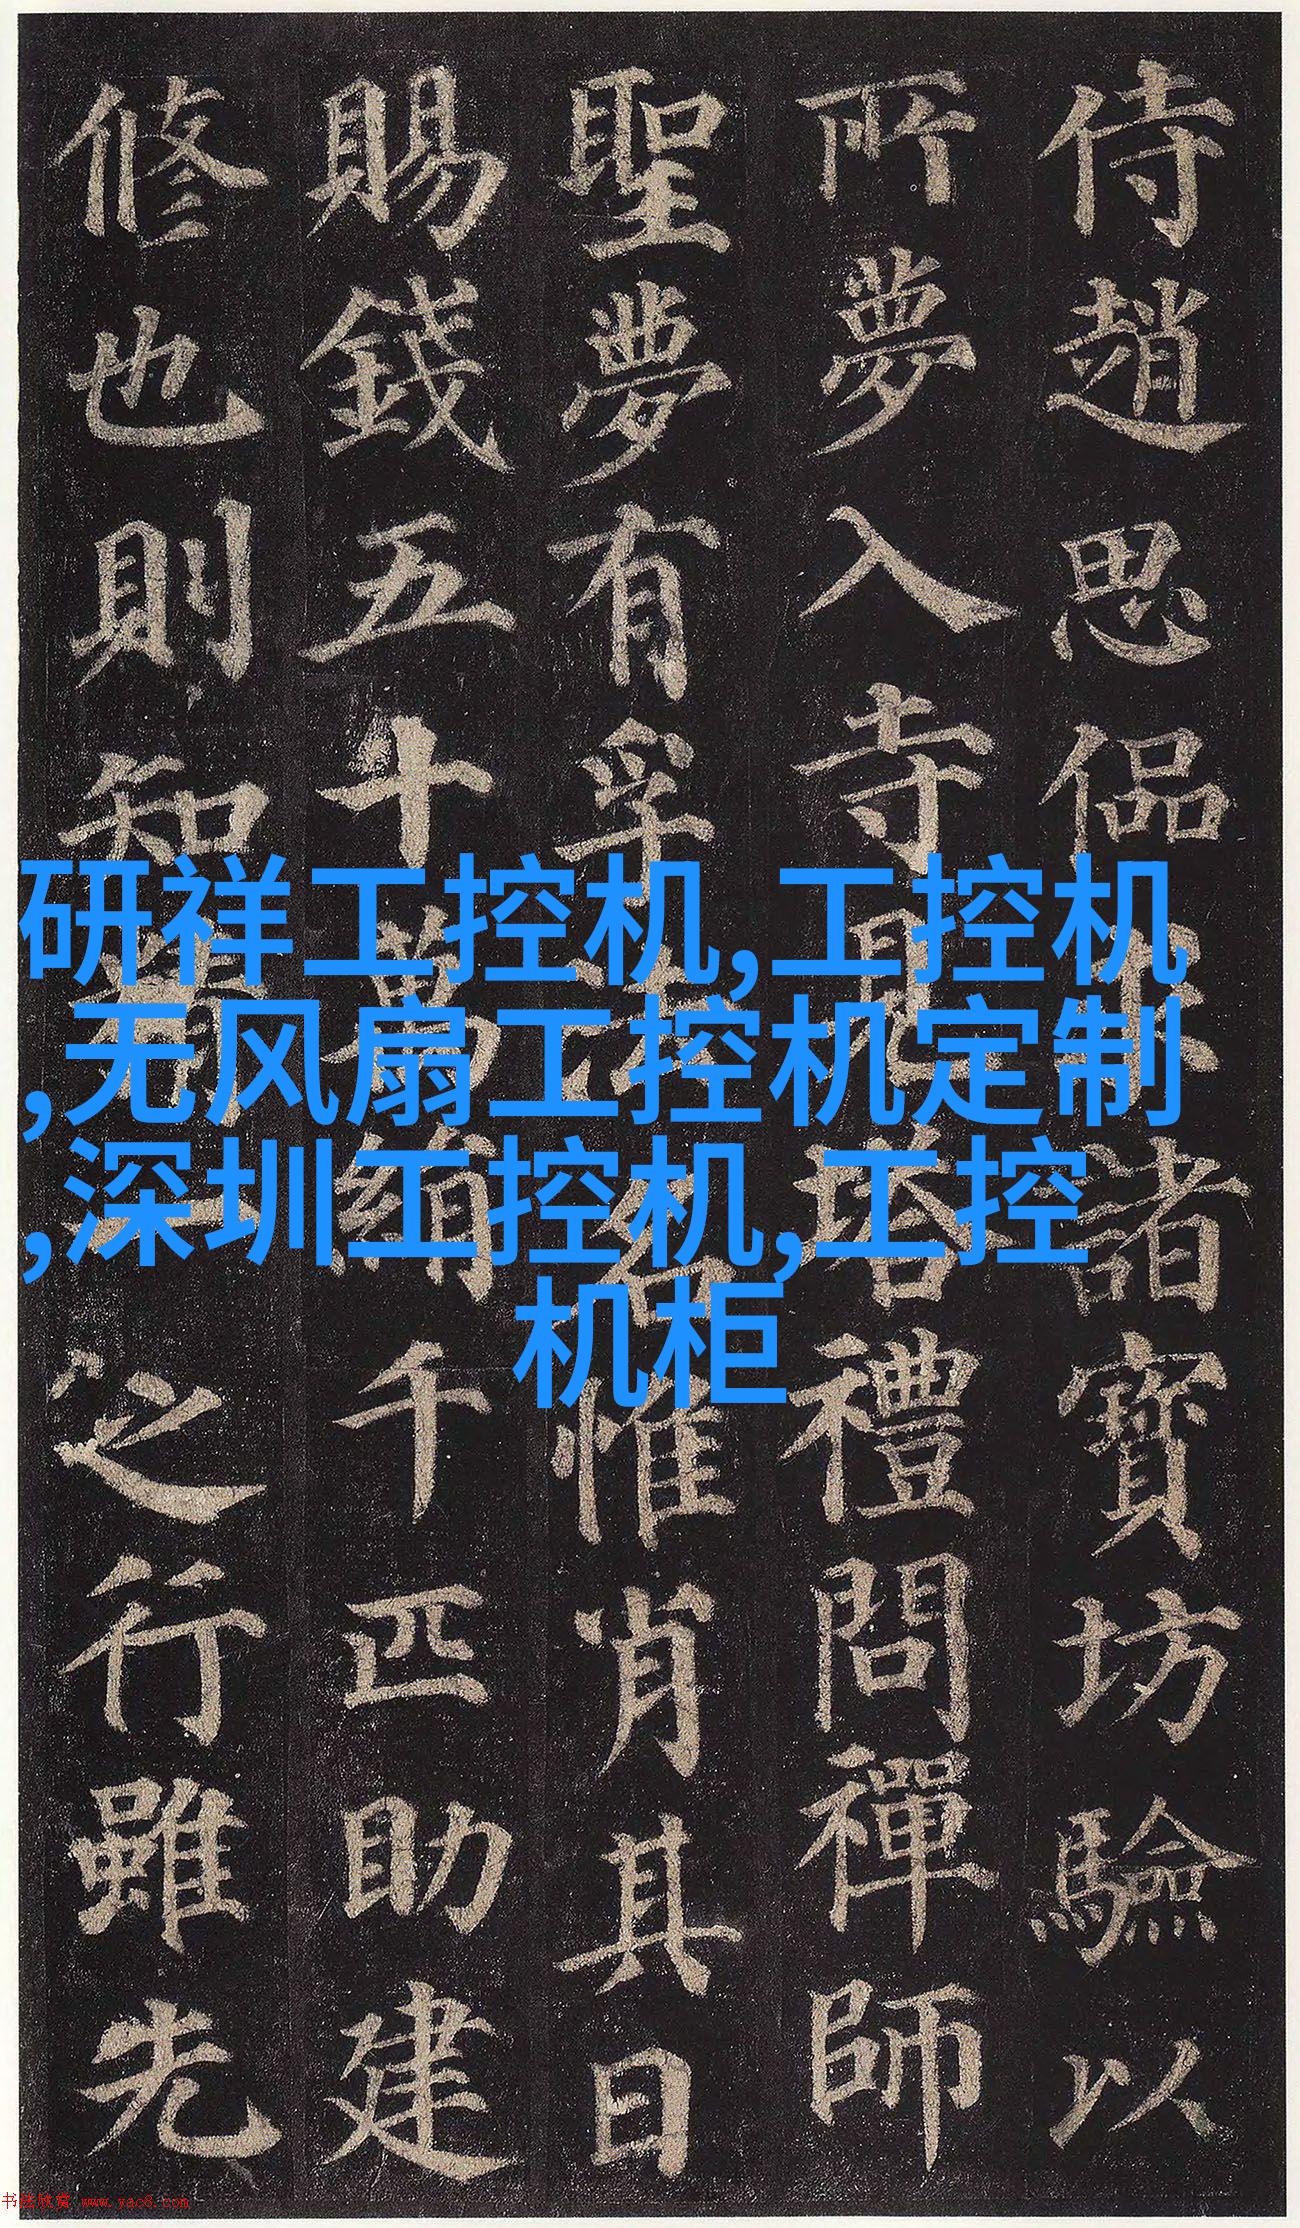 侍趙思偘求諸寶坊驗以
所夢入寺見塔禮問禪師
聖夢有孚法名惟肖其日
賜錢五十萬絹千匹助建
修也則知精一之行雖先
研祥工控机,工控机
,无风扇工控机定制
,深圳工控机,工控
机柜
书法欣赏 www.yac8.com